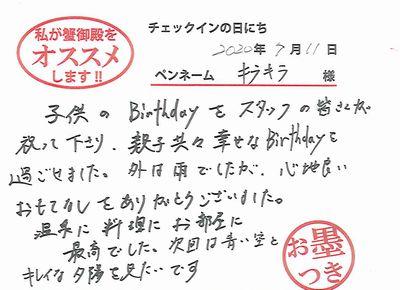 私が蟹御殿を
オススメ
します!!
チェックインの日にち
2020年9月11日
ペンネーム キラキラ 様
子供の Birthday を スタッフの皆さんが
祝って下さり、親子共々幸せなBirthdayを
過ごせました。外は雨でしたが、心地良い
おもてなしをありがとうございました。
温泉に料理にお部屋に
最高でした。次回は青い空と
キレイな夕陽を見たいです
お墨
つき